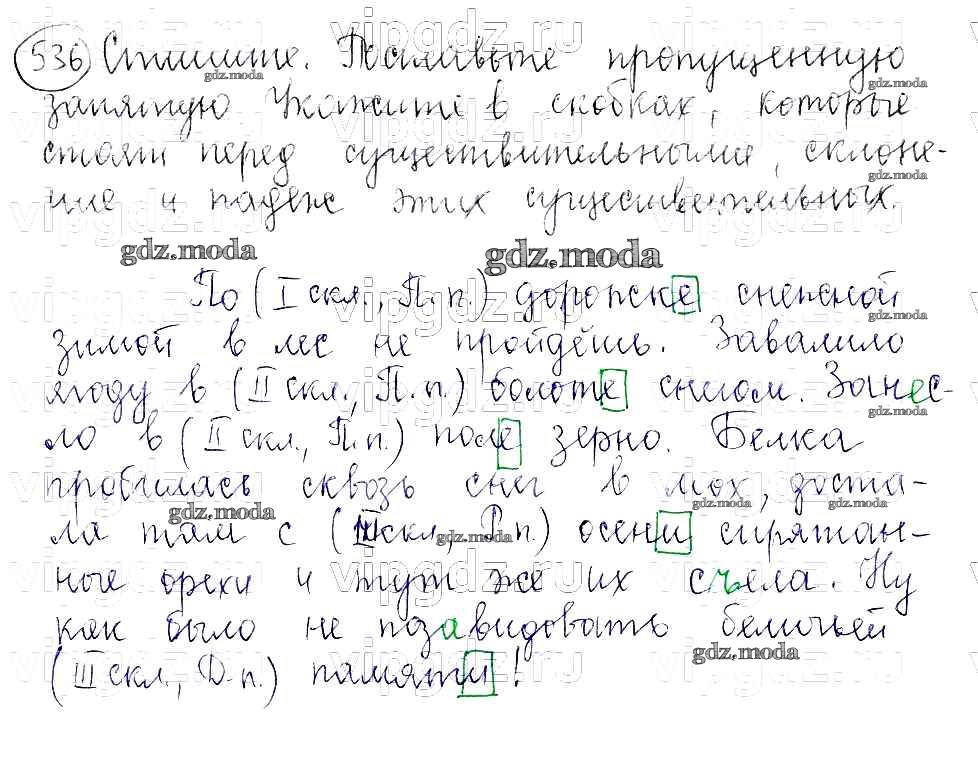 536 Спишите. Поставьте пропущенную
запятую Укажите в скобках, которые
стоят перед существительными, склоне-
ние и падеж этих существительных.
gdz.moda gdz.moda
По (I скл., П. п.) дорожке снежной
зимой в лес не пройдёшь. Завалило
ягоду в (II скл., П. п.) болоте снегом. Занес-
ло в (II скл., П. п.) поле зерно. Белка
пробилась сквозь снег в мох, доста-
ла там с (III скл., Р. п.) осени спрятан-
ные орехи и тут же их съела. Ну
как было не позавидовать беличьей
(III скл., Д. п.) памяти!